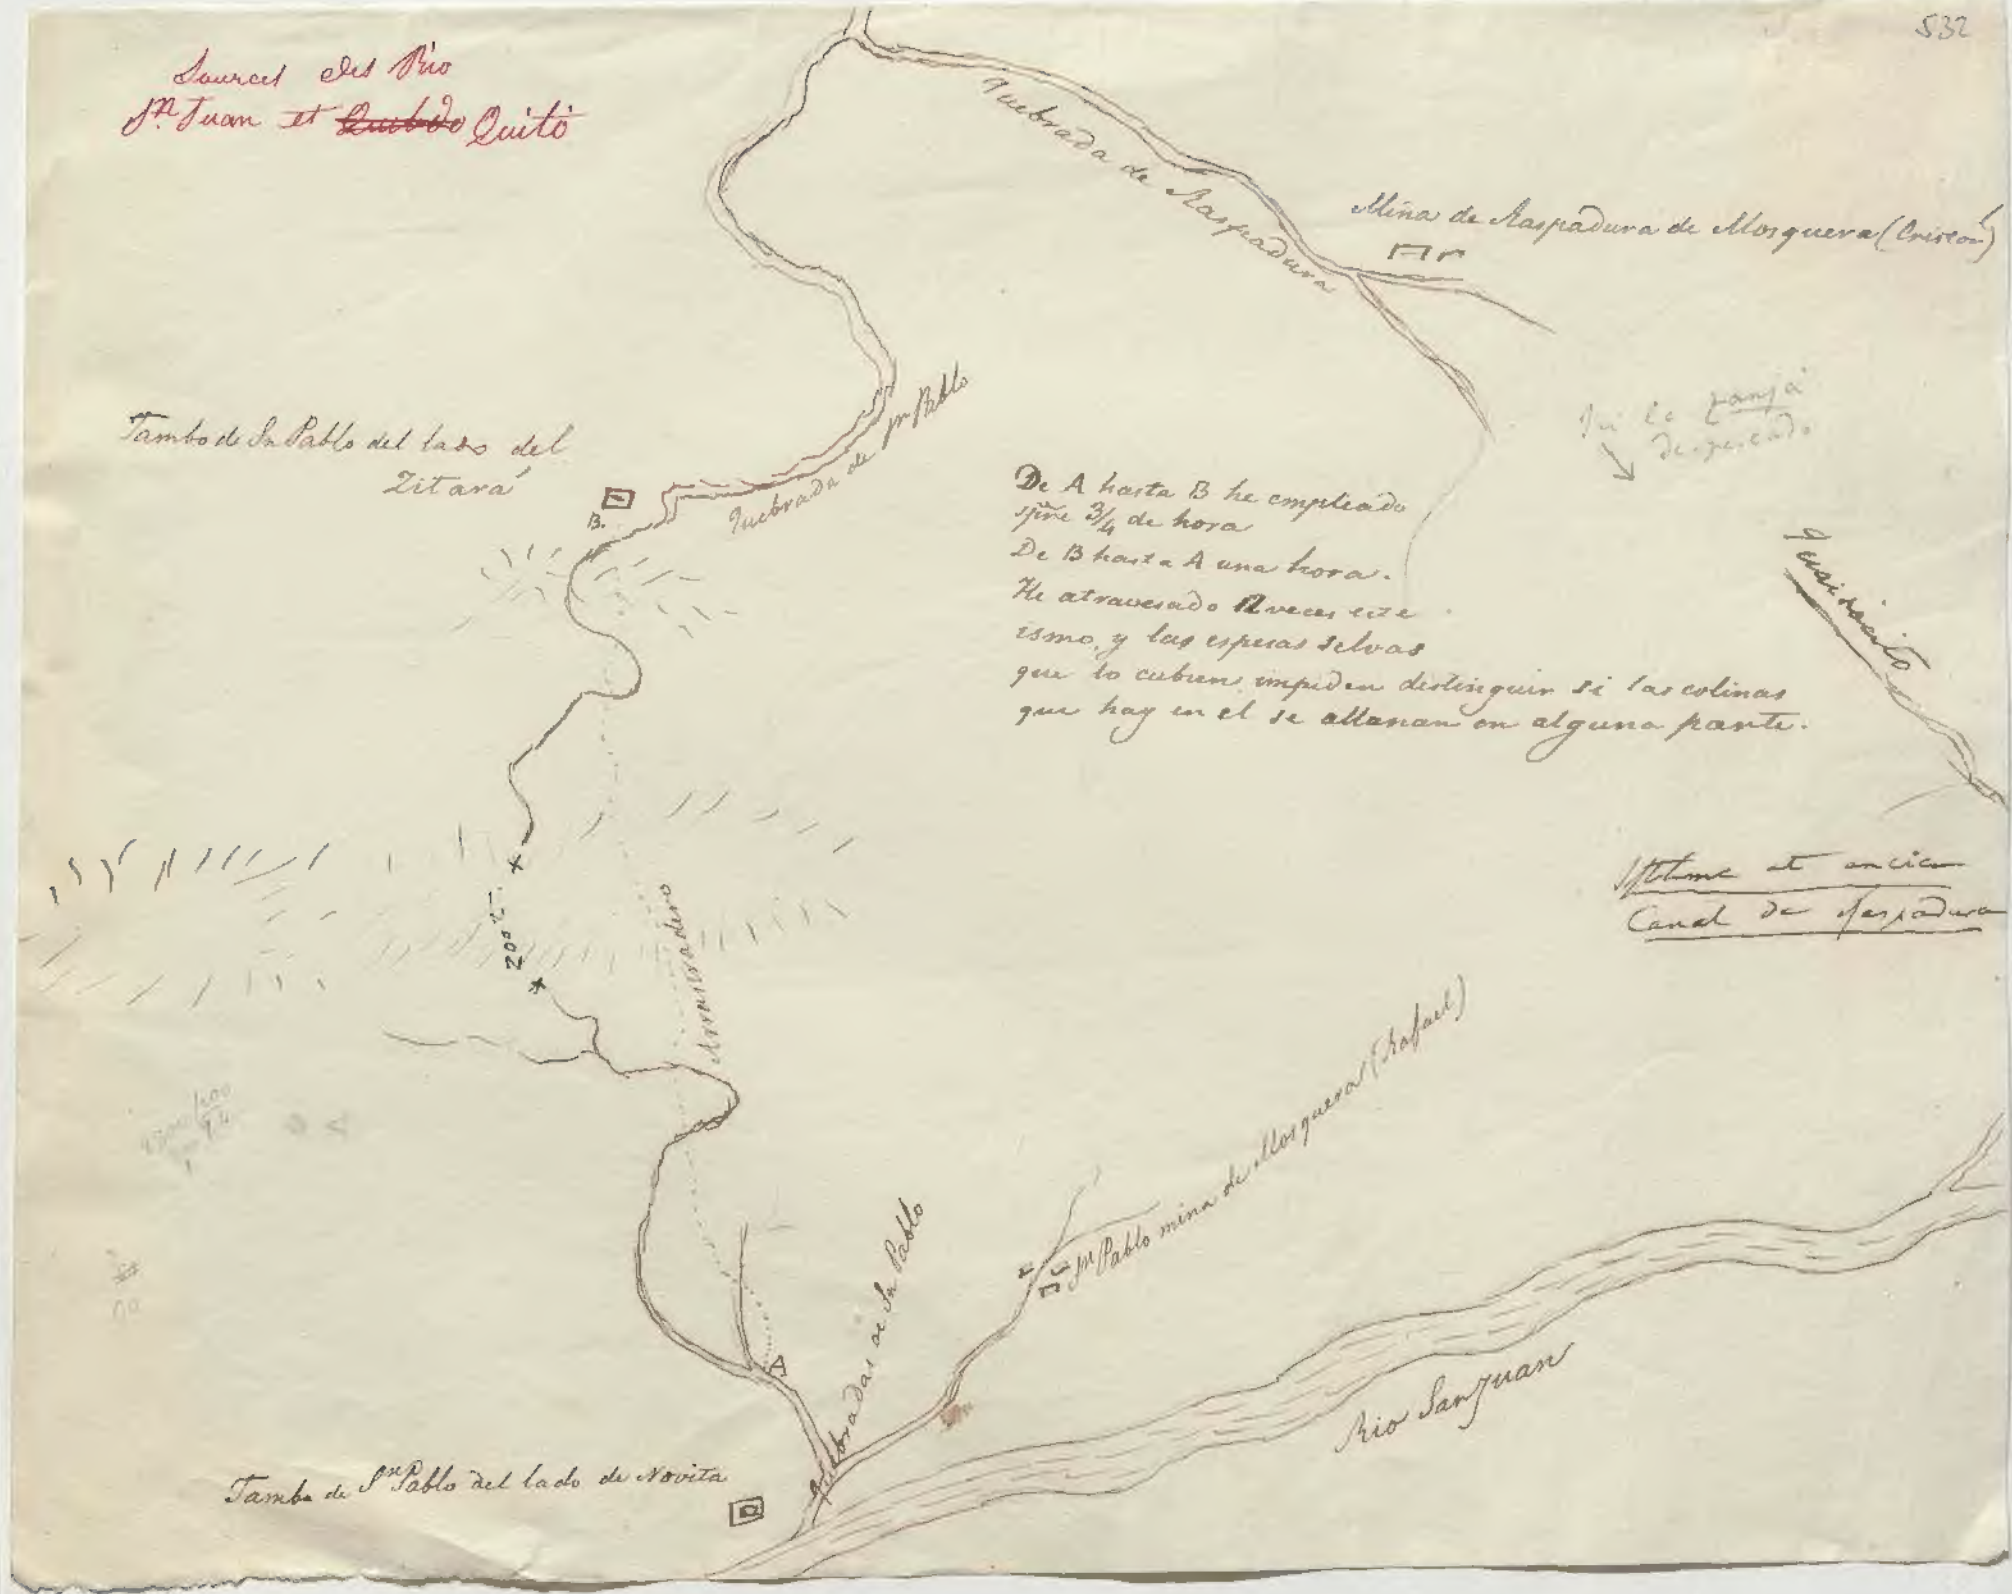 532
Sources des Rio
Sn. Juan et Quibdo Quito
Quebrada de Raspadura
Mina de Raspadura de Mosquera
Tambo de Sn Pablo del lado del
Zitará
B.
Quebrada de Sn Pablo
De A hasta B he empleado
3/4 de hora
De B hasta A una hora.
He atravesado 12 veces este
ismo, y las espesas selvas
que lo cubren impiden distinguir si las colinas
que hay en el se allanan en alguna parte.
200
Arrastradero
Isthme et ancien
Canal de Raspadura
Sn Pablo mina de Mosquera (Rafael)
A
Quebradas de Sn Pablo
Rio San Juan
Tambo de Sn Pablo del lado de Novita